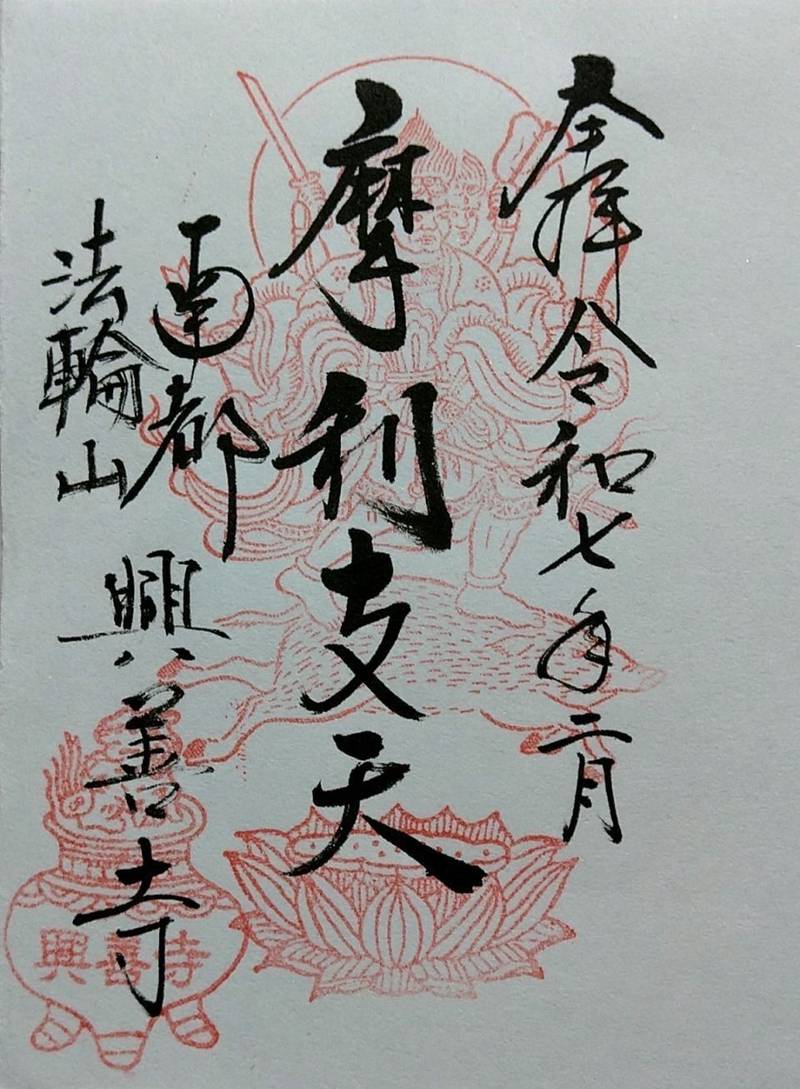 奉拝 令和七年二月
摩利支天
南都
法輪山 興善寺
興善寺